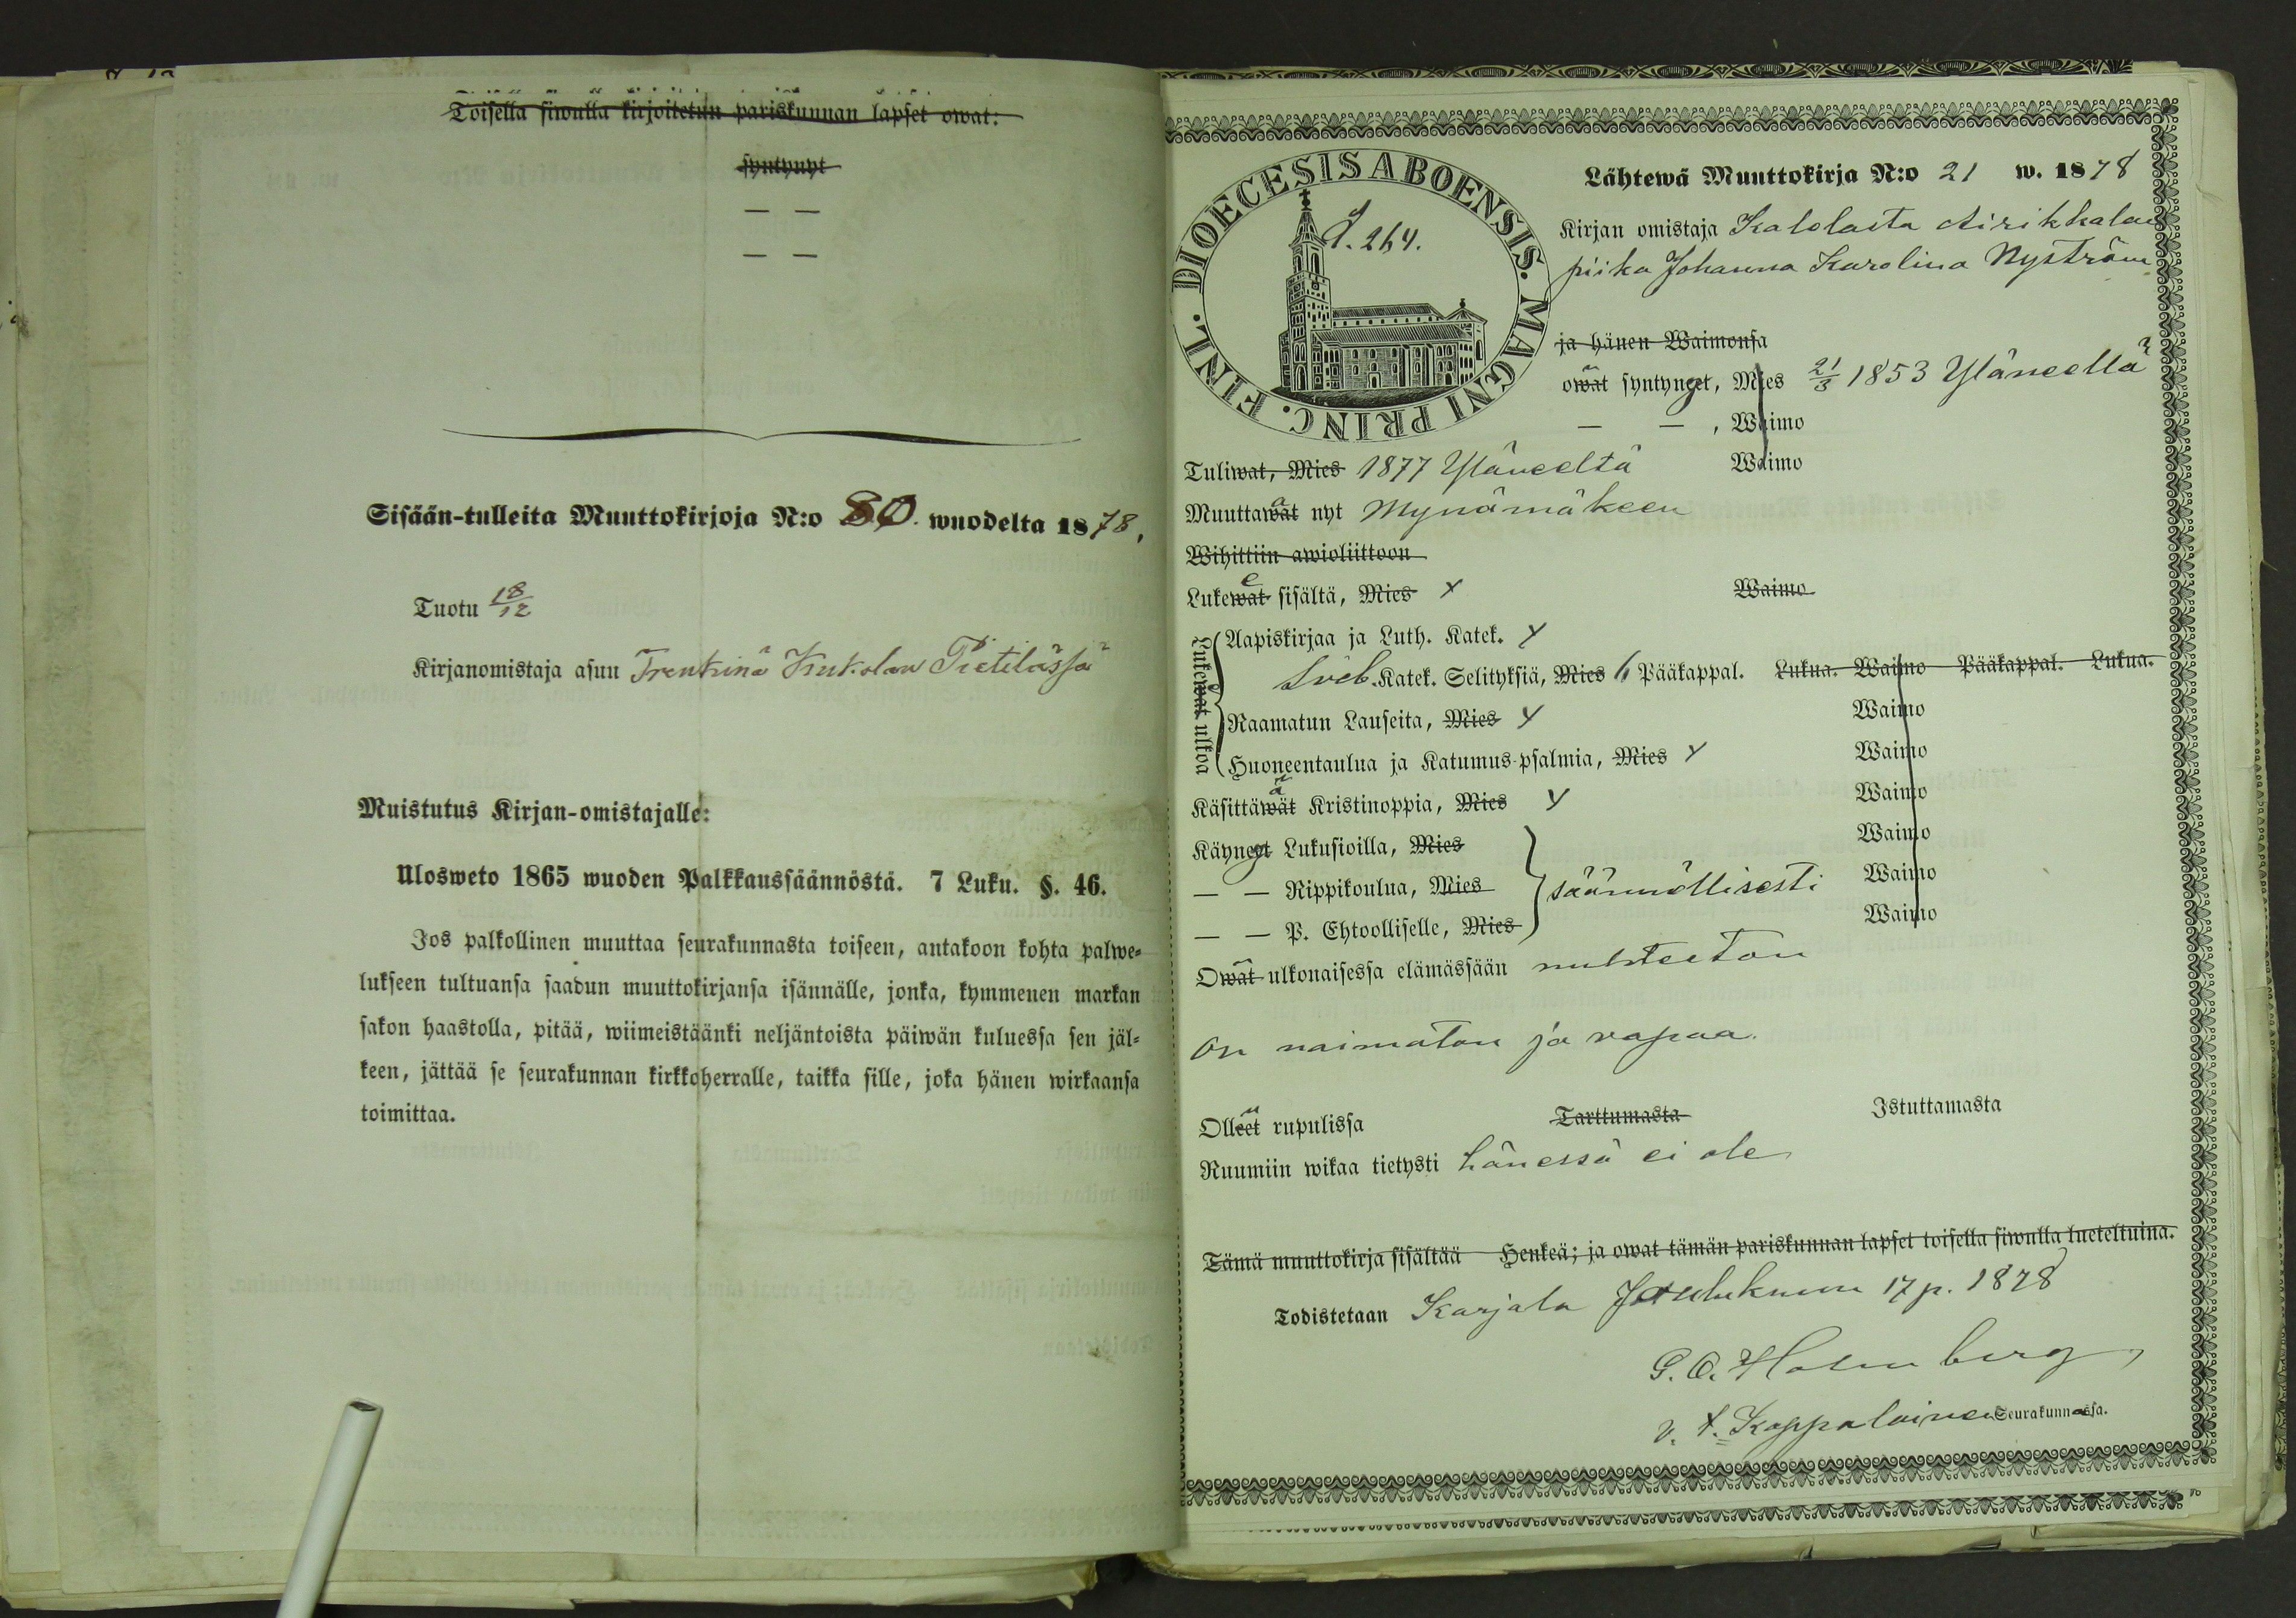 Toisella siwulla kirjoitetun pariskunnan lapset owat:
syntynyt
— —
— —
Sisään-tulleita Muuttokirjoja N:o 80. wuodelta 1878,
Tuotu 18/12
Kirjanomistaja asuu Trenkinä Kukolan Pietilässä
Muistutus Kirjan-omistajalle:
Ulosweto 1865 wuoden Palkkaussäännöstä. 7 Luku. §. 46.
Jos palkollinen muuttaa seurakunnasta toiseen, antakoon kohta palwe-
lukseen tultuansa saadun muuttokirjansa isännälle, jonka, kymmenen markan
sakon haastolla, pitää, wiimeistäänki neljäntoista päiwän kuluessa sen jäl-
keen, jättää se seurakunnan kirkkoherralle, taikka sille, joka hänen wirkaansa
toimittaa.
DIOECESIS ABOENSIS. MAGNI PRINC. FINL.
S. 264.
Lähtewä Muuttokirja N:o 21 w. 1878
Kirjan omistaja Kalolasta Airikkalan
piika Johanna Karolina Nyström
ja hänen Waimonsa
owat syntynyt, Mies 21/3 1853 Yläneellä
— — , Waimo
Tuliwat, Mies 1877 Yläneeltä Waimo
Muuttawat nyt Mynämäkeen
Wihittiin awioliittoon
Lukewat sisältä, Mies y Waimo
Lukewat ulkoa
Aapiskirjaa ja Luth. Katek. y
Sveb. Katek. Selityksiä, Mies 6 Pääkappal. Lukua. Waimo Pääkappal. Lukua.
Raamatun Lauseita, Mies y Waimo
Huoneentaulua ja Katumus-psalmia, Mies y Waimo
Käsittäwät Kristinoppia, Mies y Waimo
Käynyt Lukusioilla, Mies Waimo
— — Rippikoulua, Mies säännöllisesti Waimo
— — P. Ehtoolliselle, Mies Waimo
Owat ulkonaisessa elämässään nuhteeton
On naimaton ja vapaa.
Olleet rupulissa Tarttumasta Istuttamasta
Ruumiin wikaa tietysti hänessä ei ole
Tämä muuttokirja sisältää Henkeä; ja owat tämän pariskunnan lapset toisella siwulla lueteltuina.
Todistetaan Karjala Joulukuun 17 p. 1878
G. O. Holmberg
v. t. Kappalainen Seurakunnassa.